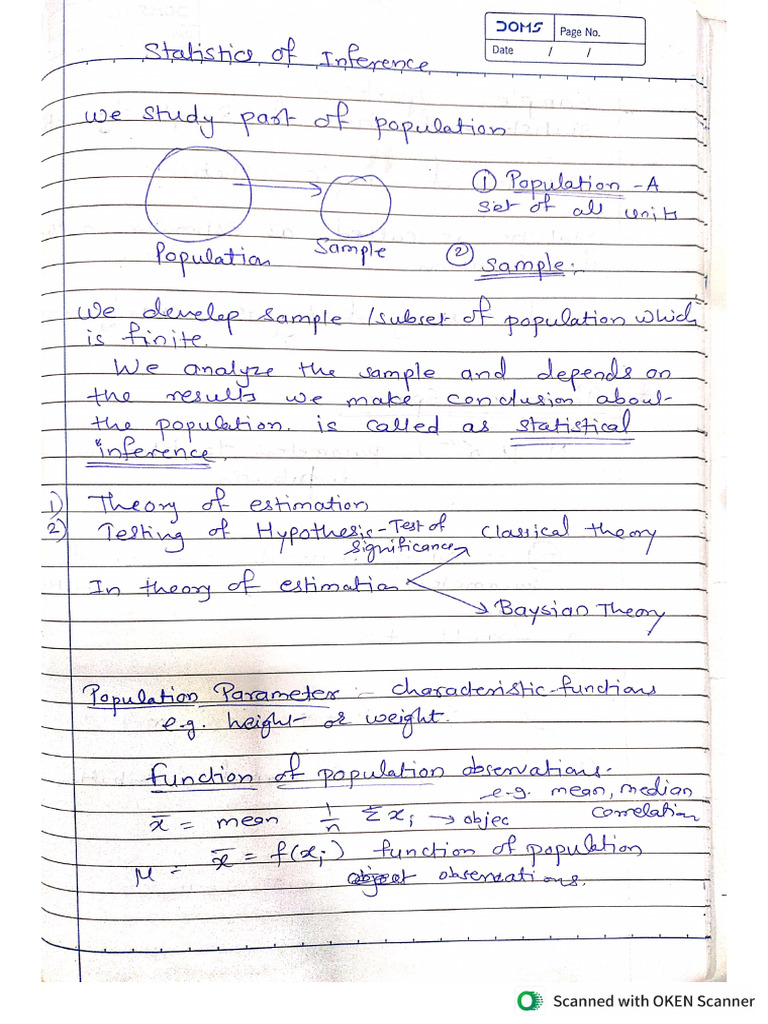 DOMS Page No.
Date / /
Statistics of Inference
We study part of population
① Population - A
set of all units
Population Sample
② Sample:-
We develop sample /subset of population which
is finite.
We analyze the sample and depends on
the results we make conclusion about
the population. is called as statistical
inference.
1) Theory of estimation
2) Testing of Hypothesis - Test of
significance
Classical theory
In theory of estimation
Baysian Theory
Population Parameter - characteristic functions
e.g. height or weight.
function of population observations.
e.g. mean, median
correlation
x̄ = mean 1/n Σxi → objec
μ = x̄ = f(xi) function of population
object observations.
Scanned with OKEN Scanner